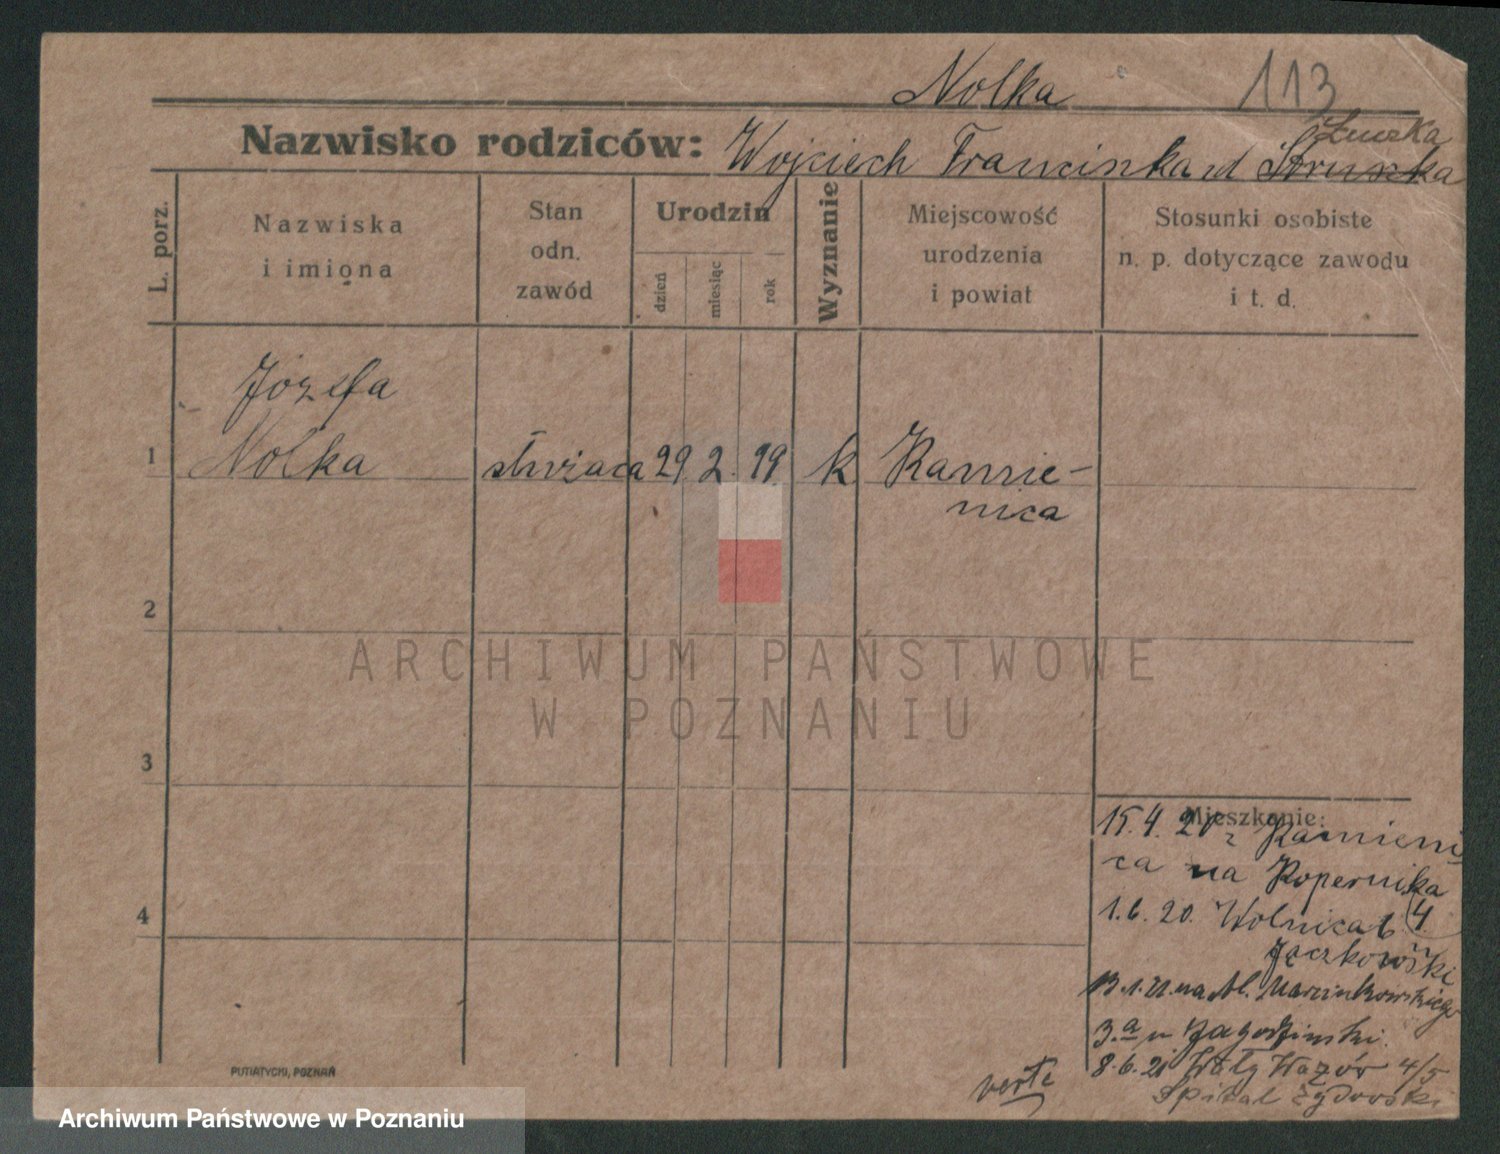 Nolka 113
Nazwisko rodziców: Wojciech Franciszka
L. porz.
Nazwiska
i imiona
Stan
odn.
zawód
Urodzin
dzień
miesiąc
rok
Wyznanie
Miejscowość
urodzenia
i powiat
Stosunki osobiste
n. p. dotyczące zawodu
i t. d.
Józefa
1 Nolka służąca 29. 2. 99 k Kamie-
nica
2
3
4
ARCHIWUM PAŃSTWOWE
W POZNANIU
Mieszkanie:
15. 4. 20 z Kamieni
ca na Kopernika
1. 6. 20. Wolnica 6. 4
Jączkowski
13. 1. 21. na Al. Marcinkowskiego
3.a u Jagodzinski.
8. 6. 21 Wały Wazów 4/5
Spital Żydowski
verte
PUTIATYCKI, POZNAŃ
Archiwum Państwowe w Poznaniu